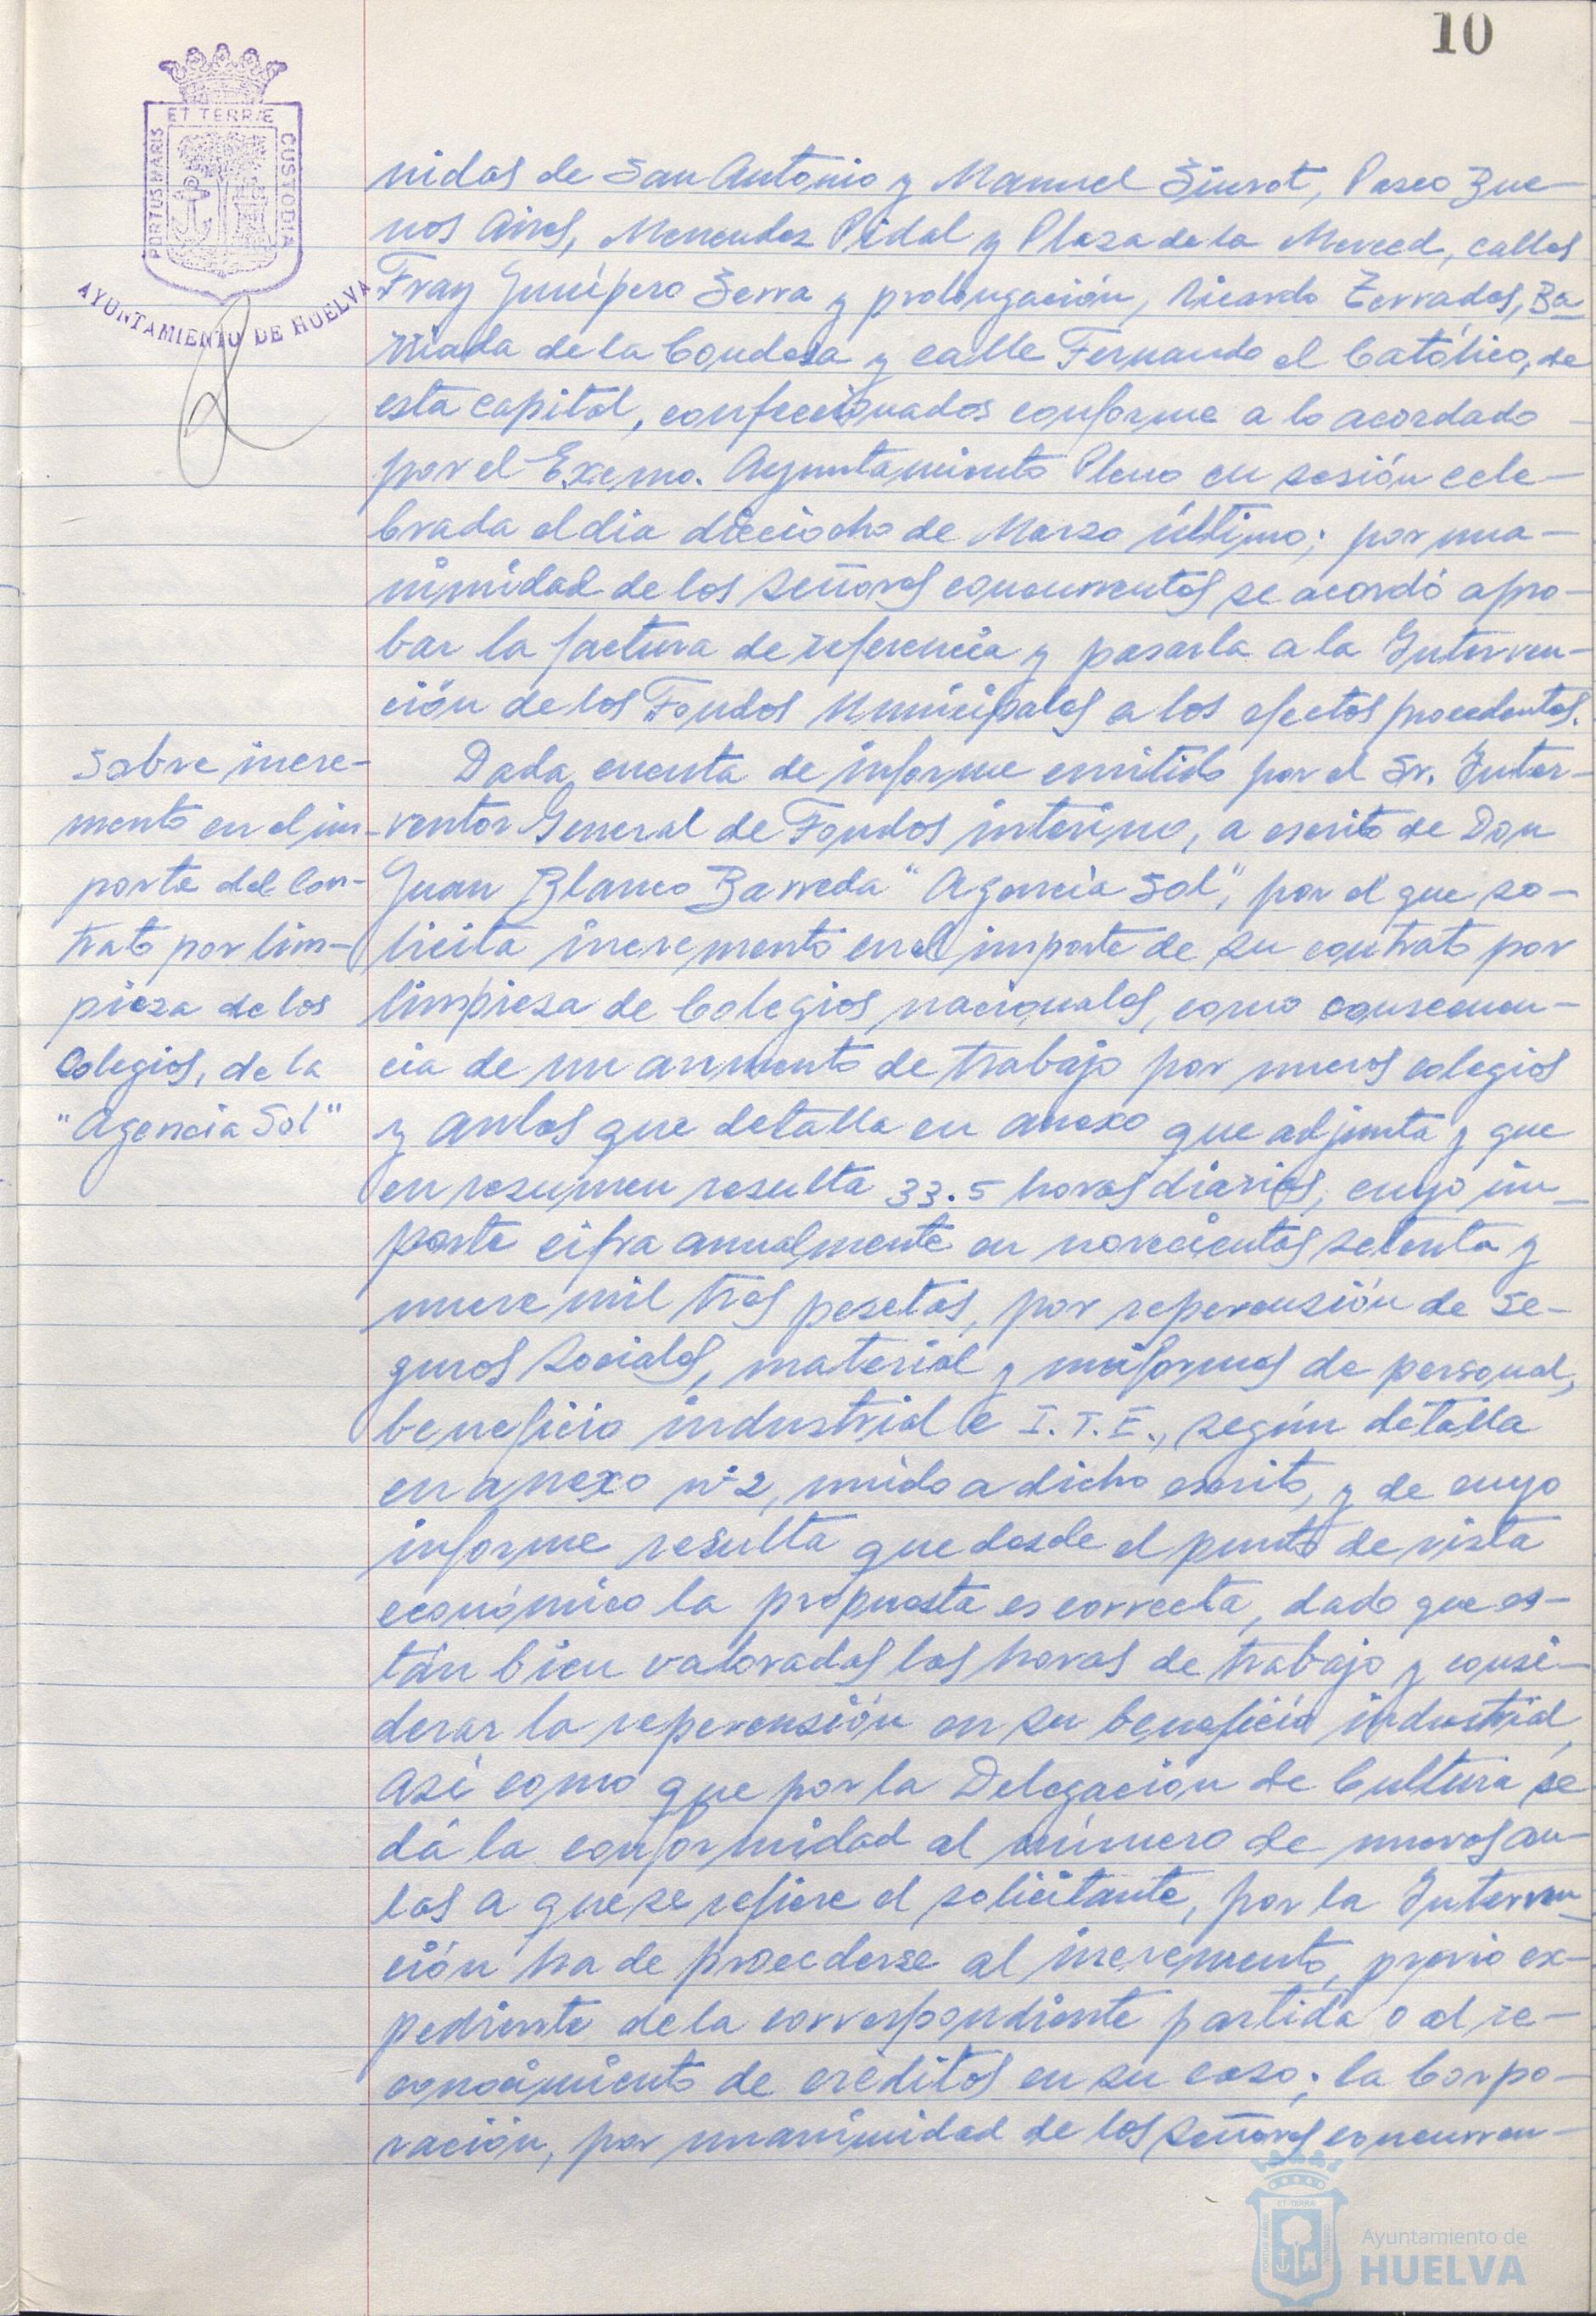 10
ET TERRÆ
PORTUS MARIS
CUSTODIA
AYUNTAMIENTO DE HUELVA
nidas de San Antonio y Manuel Siurot, Paseo Bue-
nos Aires, Menendez Pidal y Plaza de la Merced, calles
Fray Junípero Serra y prolongación, Ricardo Terrades, Ba
rriada de la Condesa y calle Fernando el Católico, de
esta capital, confeccionados conforme a lo acordado
por el Excmo. Ayuntamiento Pleno en sesión cele-
brada el dia dieciocho de Marzo último; por una-
nimidad de los señores concurrentes se acordó apro-
bar la factura de referencia y pasarla a la Interven-
ción de los Fondos Municipales a los efectos procedentes.
Sobre incre-
mento en el im-
porte del Con-
trato por lim-
pieza de los
Colegios, de la
"Agencia Sol"
Dada cuenta de informe emitido por el Sr. Inter-
ventor General de Fondos interino, a escrito de Don
Juan Blanco Barreda "Agencia Sol", por el que so-
licita incremento en el importe de su contrato por
limpieza de Colegios nacionales, como consecuen-
cia de un aumento de trabajo por nuevos colegios
y aulas que detalla en anexo que adjunta y que
en resumen resulta 33.5 horas diarias, cuyo im-
porte cifra anualmente en novecientas setenta y
nueve mil tres pesetas, por repercusión de Se-
guros Sociales, material y uniformes de personal,
beneficio industrial e I.T.E., según detalla
en anexo nº 2, unido a dicho escrito, y de cuyo
informe resulta que desde el punto de vista
económico la propuesta es correcta, dado que es-
tán bien valoradas las horas de trabajo y consi-
derar la repercusión en su beneficio industrial,
así como que por la Delegación de Cultura se
dá la conformidad al número de nuevas au-
las a que se refiere el solicitante, por la Interven-
ción ha de procederse al incremento, previo ex-
pediente de la correspondiente partida o al re-
conocimiento de créditos en su caso; la Corpo-
ración, por unanimidad de los señores concurren-
Ayuntamiento de
HUELVA